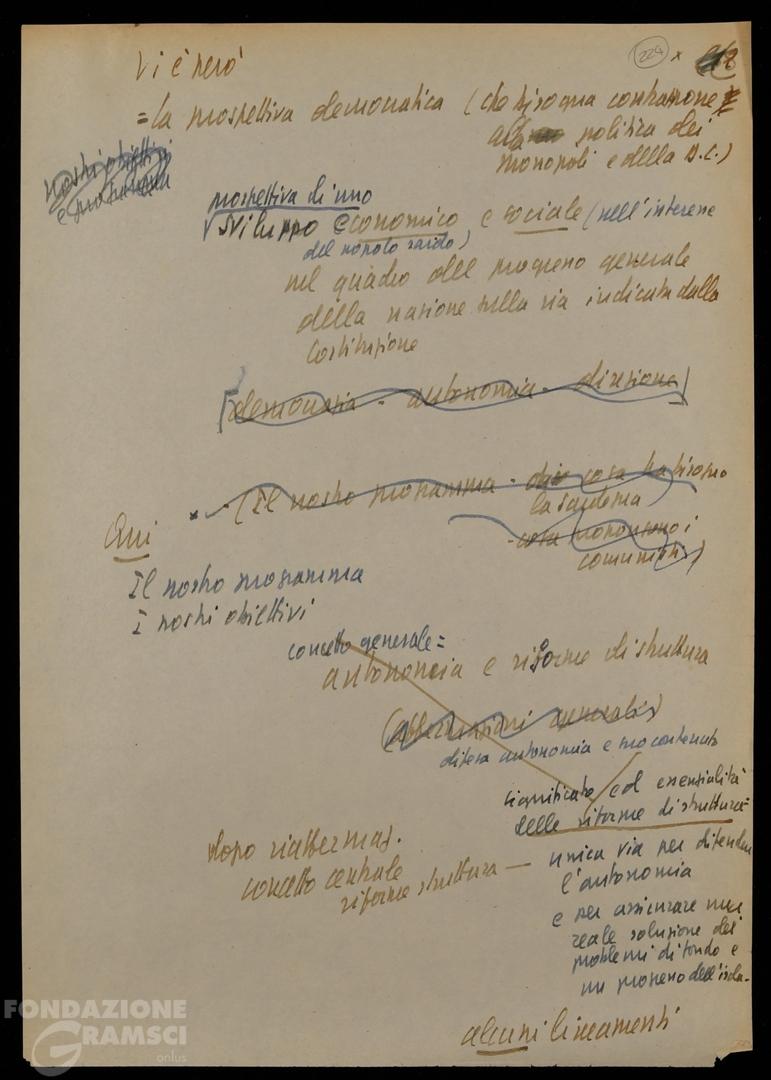 224 x
Vi è però
= la prospettiva democratica (che bisogna contrapporre
alla politica dei
monopoli e della D.C.)
nostri obiettivi
e programma
prospettiva di uno
sviluppo economico e sociale (nell'interesse
del popolo sardo)
nel quadro del progresso generale
della nazione sulla via indicata dalla
Costituzione
[democrazia - autonomia - direzione]
- (Il nostro programma - di cosa ha bisogno
la Sardegna
- cosa propongono i
comunisti)
Qui
Il nostro programma
I nostri obiettivi
concetto generale =
autonomia e riforme di struttura
(affermazioni generali)
difesa autonomia e suo contenuto
significato ed essenzialità
delle riforme di struttura =
dopo riaffermaz.
concetto centrale
riforme struttura —
unica via per difendere
l'autonomia
e per assicurare una
reale soluzione dei
problemi di fondo e
un progresso dell'isola -
alcuni lineamenti
FONDAZIONE
GRAMSCI
onlus